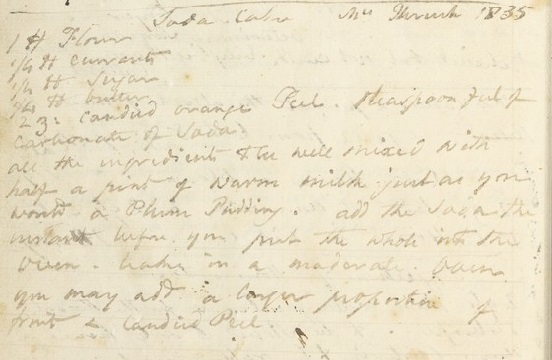 Soda Cake Mrs 1835
1 # Flour
1/4 # Currants
1/4 # Sugar
1/4 # butter
2 3: candied orange Peel. teaspoon full of
Carbonate of Soda
all the ingredients to be well mixed with
half a pint of warm milk just as you
would a Plum Pudding. add the Soda the
instant before you put the whole into the
Oven. bake in a moderate Oven
you may add a larger proportion of
fruit & candied Peel.